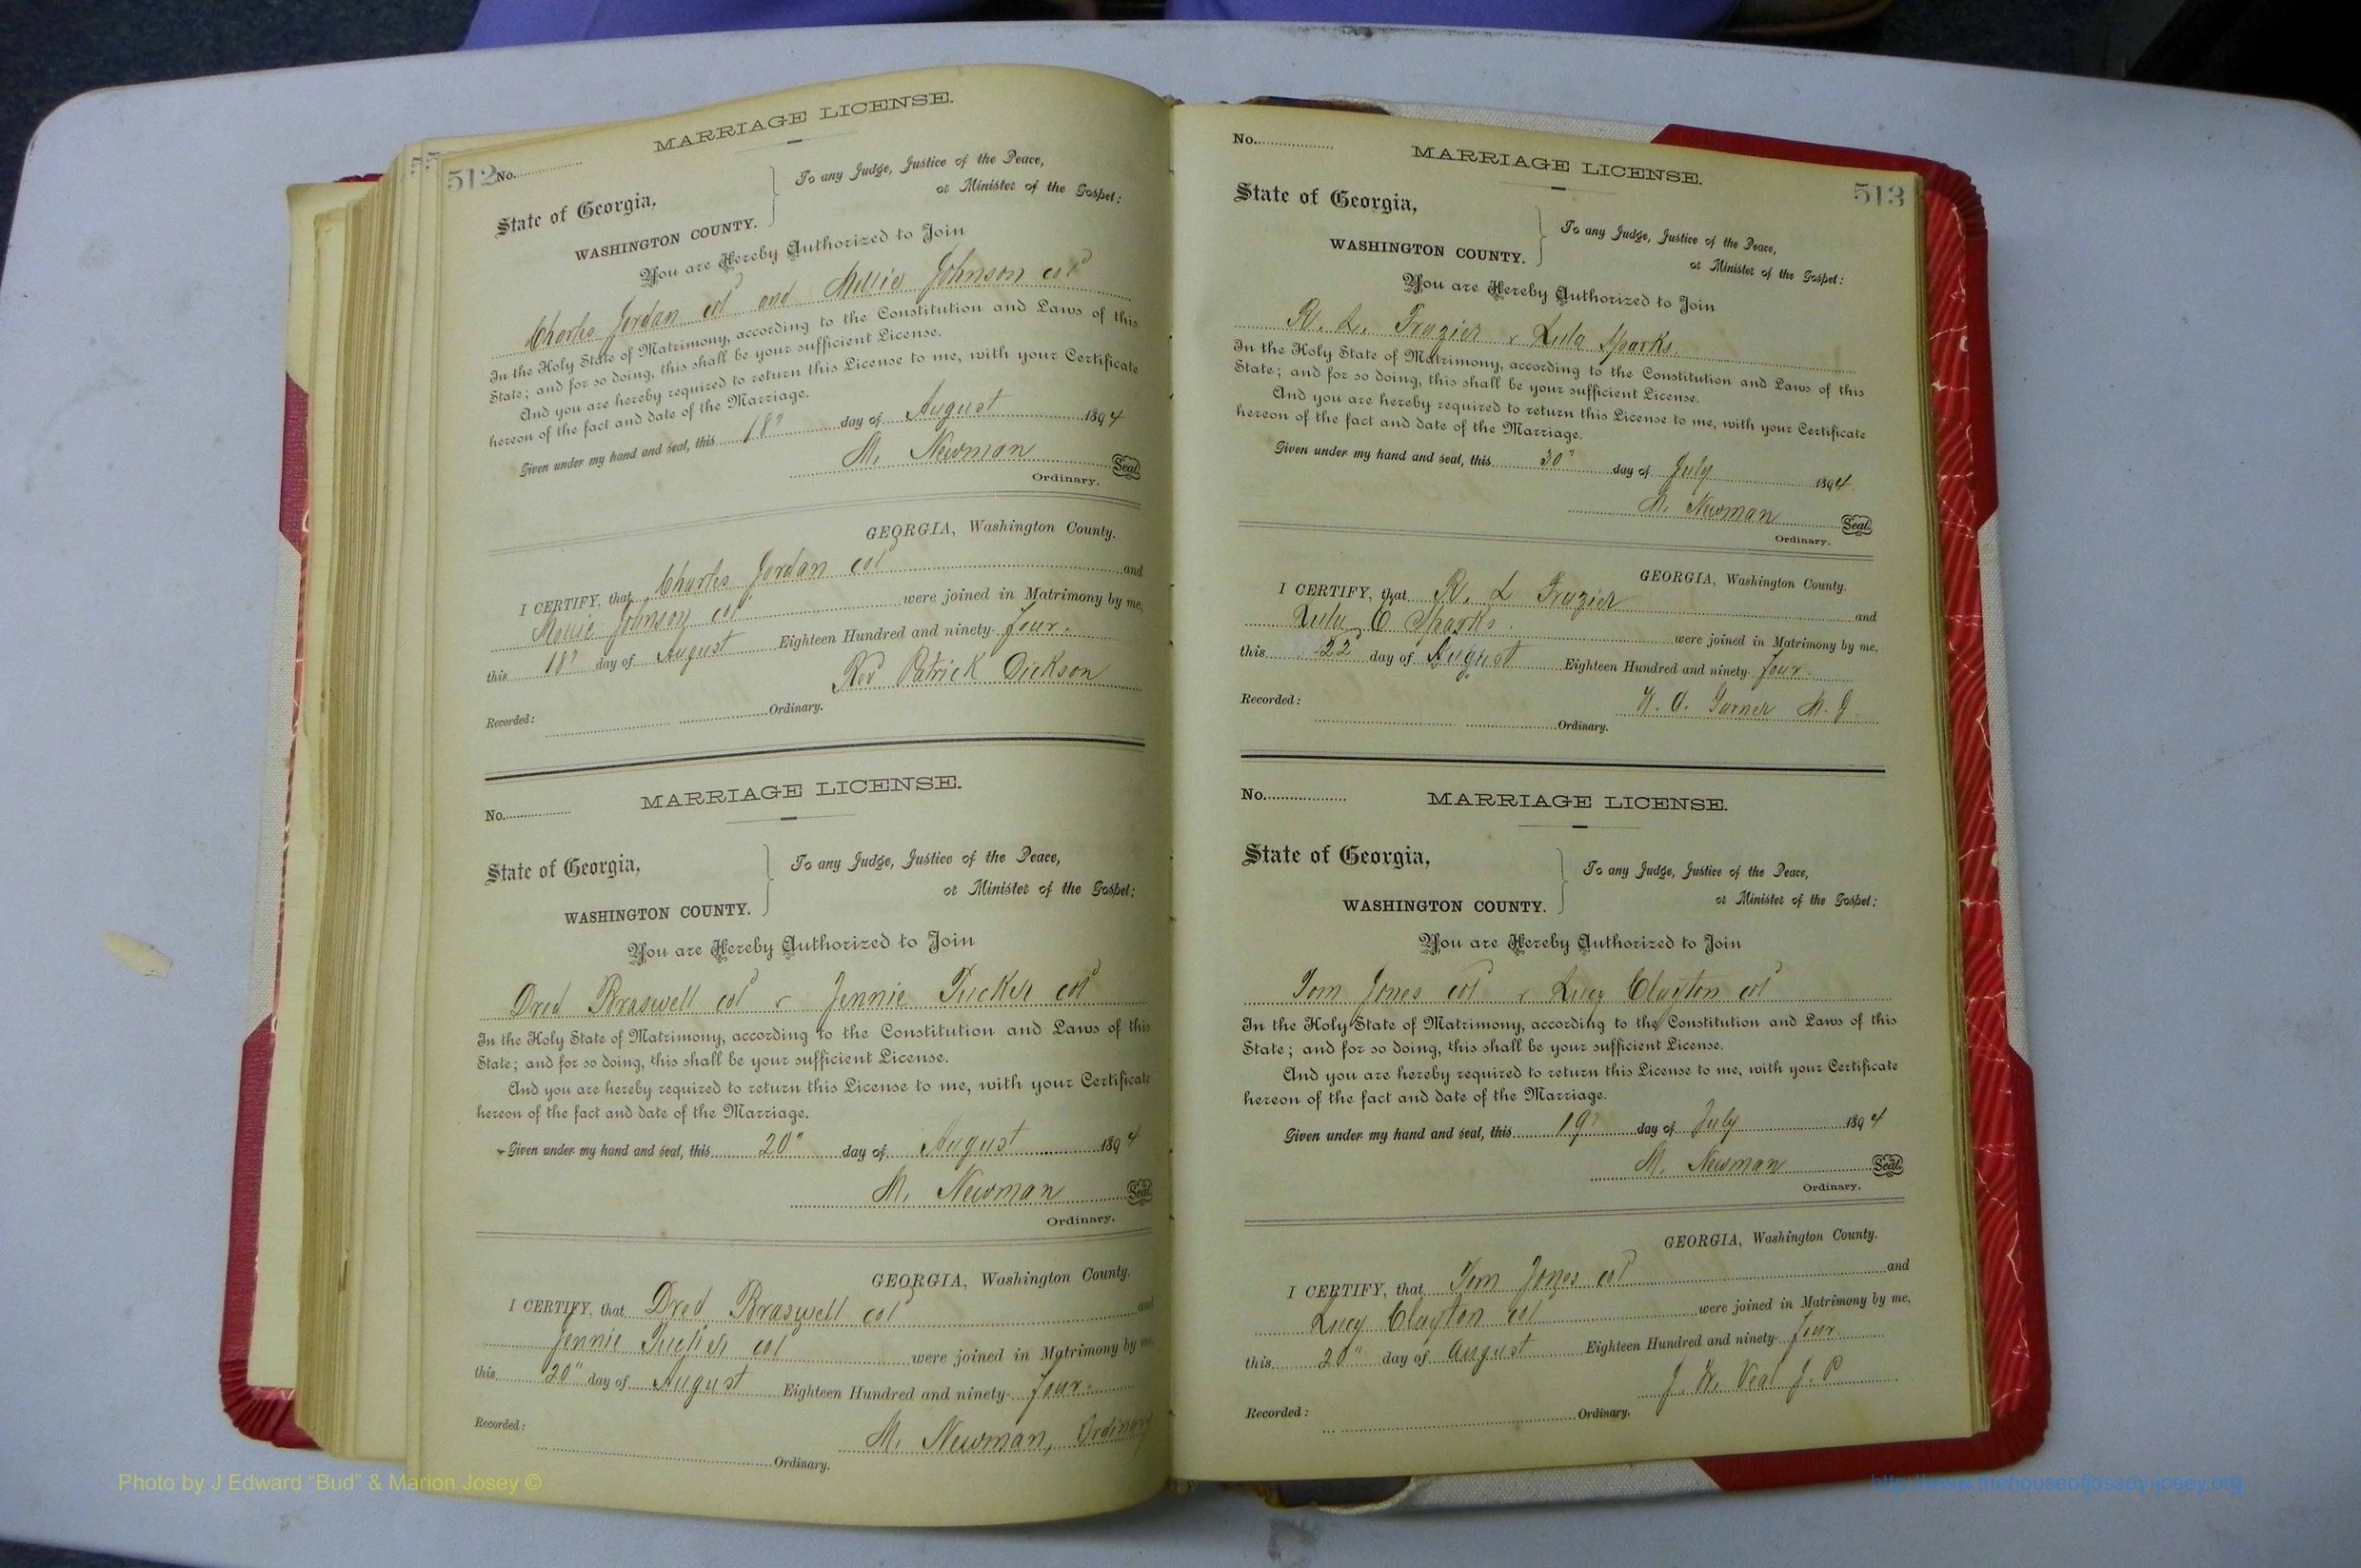 512
No.
MARRIAGE LICENSE.
State of Georgia,
WASHINGTON COUNTY.
To any Judge, Justice of the Peace,
or Minister of the Gospel:
You are Hereby Authorized to Join
Charles Jordan cold and Mollie Johnson cold
In the Holy State of Matrimony, according to the Constitution and Laws of this
State; and for so doing, this shall be your sufficient License.
And you are hereby required to return this License to me, with your Certificate
hereon of the fact and date of the Marriage.
Given under my hand and seal, this 18" day of August 1894
M. Newman
Seal.
Ordinary.
GEORGIA, Washington County.
I CERTIFY, that Charles Jordan cold and
Mollie Johnson cold were joined in Matrimony by me,
this 18" day of August Eighteen Hundred and ninety-four.
Rev Patrick Dickson
Recorded:
Ordinary.
MARRIAGE LICENSE.
No.
State of Georgia,
WASHINGTON COUNTY.
To any Judge, Justice of the Peace,
or Minister of the Gospel:
You are Hereby Authorized to Join
Dred Braswell cold & Jennie Tucker cold
In the Holy State of Matrimony, according to the Constitution and Laws of this
State; and for so doing, this shall be your sufficient License.
And you are hereby required to return this License to me, with your Certificate
hereon of the fact and date of the Marriage.
Given under my hand and seal, this 20" day of August 1894
M. Newman
Seal.
Ordinary.
GEORGIA, Washington County.
I CERTIFY, that Dred Braswell cold and
Jennie Tucker cold were joined in Matrimony by me,
this 20" day of August Eighteen Hundred and ninety-four.
M. Newman, Ordinary
Recorded:
Ordinary.
No.
MARRIAGE LICENSE.
513
State of Georgia,
WASHINGTON COUNTY.
To any Judge, Justice of the Peace,
or Minister of the Gospel:
You are Hereby Authorized to Join
R. L. Frazier & Lula Sparks.
In the Holy State of Matrimony, according to the Constitution and Laws of this
State; and for so doing, this shall be your sufficient License.
And you are hereby required to return this License to me, with your Certificate
hereon of the fact and date of the Marriage.
Given under my hand and seal, this 30" day of July 1894.
M. Newman
Seal.
Ordinary.
GEORGIA, Washington County.
I CERTIFY, that R. L Frazier and
Lula C Sparks. were joined in Matrimony by me,
this 22 day of August Eighteen Hundred and ninety-four.
Garner M. G.
Recorded:
Ordinary.
No.
MARRIAGE LICENSE.
State of Georgia,
WASHINGTON COUNTY.
To any Judge, Justice of the Peace,
or Minister of the Gospel:
You are Hereby Authorized to Join
Tom Jones cold & Lucy Clayton cold
In the Holy State of Matrimony, according to the Constitution and Laws of this
State; and for so doing, this shall be your sufficient License.
And you are hereby required to return this License to me, with your Certificate
hereon of the fact and date of the Marriage.
Given under my hand and seal, this 19" day of July 1894
M. Newman
Seal.
Ordinary.
GEORGIA, Washington County.
I CERTIFY, that Tom Jones cold and
Lucy Clayton cold were joined in Matrimony by me,
this 20" day of August Eighteen Hundred and ninety-four
Veal J. P
Recorded:
Ordinary.
Photo by J Edward “Bud” & Marion Josey ©
http://www.thehouseofjossey-josey.org